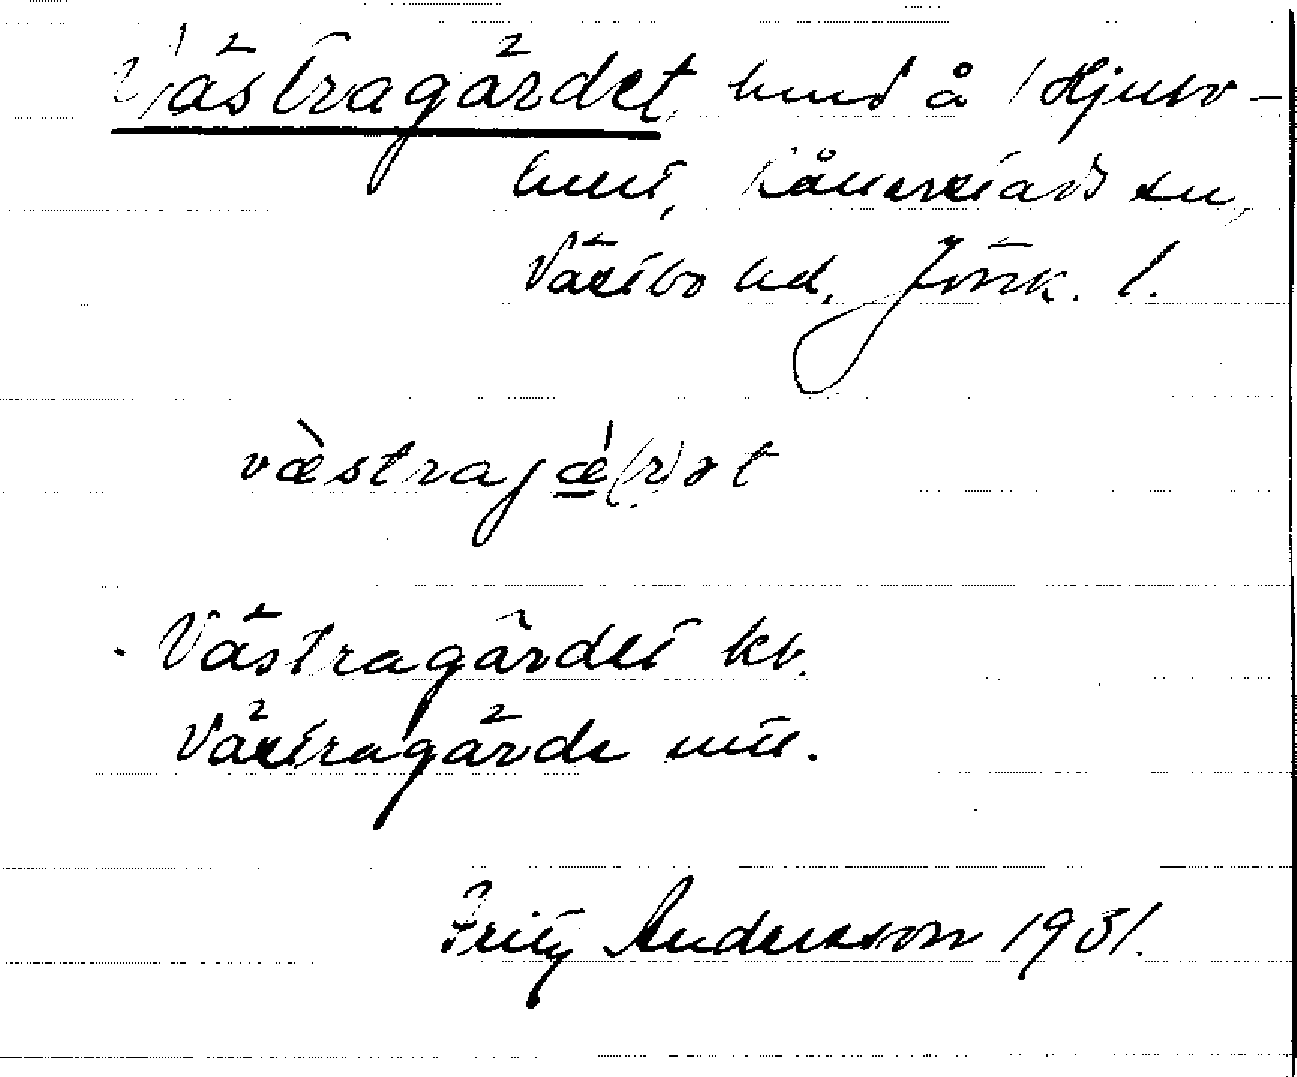 Västragärdet, hmd å 1 Hjulö-
hult, Kållerstads sn,
Västbo hd, Jönk. l.
væstrajæ(r)ət
Västragärdet kv.
Västragärde mtl.
Fritz Andersson 1931.